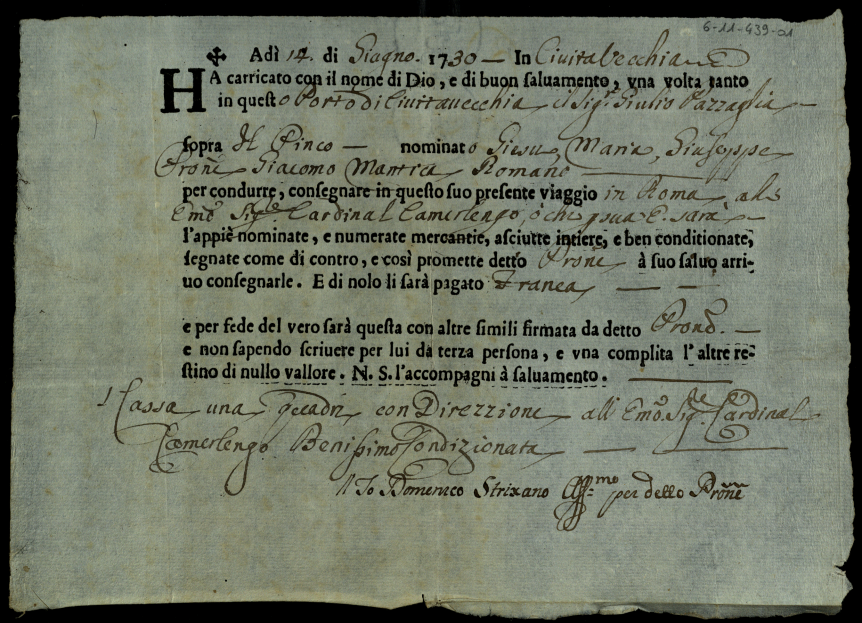 6-11-439-01
✠ Adì 14. di Giugno. 1730 — In Civita Vecchia
HA carricato con il nome di Dio, e di buon saluamento, vna volta tanto
in questo Porto di Ciuitauecchia il Sig.r Giulio Pazzaglia —
sopra Il Pinco — nominato Giesu, Maria, Giuseppe
Prone Giacomo Mantica Romano
per condurre, consegnare in questo suo presente viaggio in Roma, al
Emo Sig.re Cardinal Camerlengo, ò chi p sua E. sarà —
l'appiè nominate, e numerate mercantie, asciutte intiere, e ben conditionate,
segnate come di contro, e così promette detto Prone à suo saluo arri-
uo consegnarle. E di nolo li sarà pagato Franca — —
e per fede del vero sarà questa con altre simili firmata da detto Prond. —
e non sapendo scriuere per lui da terza persona, e vna complita l'altre re-
stino di nullo vallore. N. S. l'accompagni à saluamento.
1 Cassa una con Direzzione all' Emo. Sig.re Cardinal
Camerlengo Benissimo Condizionata —
Io Domenico Strixano per detto Prone